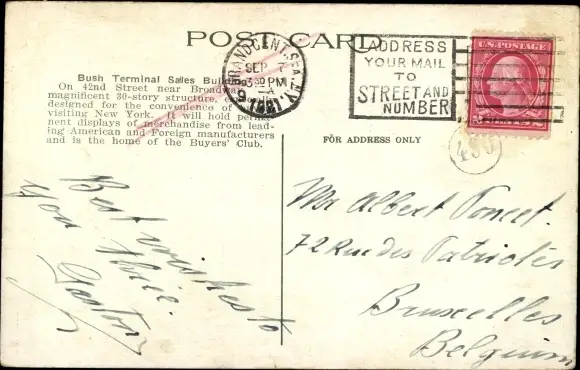 POST CARD
Bush Terminal Sales Building
On 42nd Street near Broadway
magnificent 30-story structure,
designed for the convenience of
visiting New York. It will hold perma-
nent displays of merchandise from lead-
ing American and Foreign manufacturers
and is the home of the Buyers' Club.
GRAND CENT. STA. N.Y.
SEP 7
330 PM
1921
ADDRESS
YOUR MAIL
TO
STREET AND
NUMBER
U.S. POSTAGE
FOR ADDRESS ONLY
430
Best wishes to
you thie.
Gaston
Mr Albert Poncet.
72 Rue des Patriotes
Bruxelles
Belgium